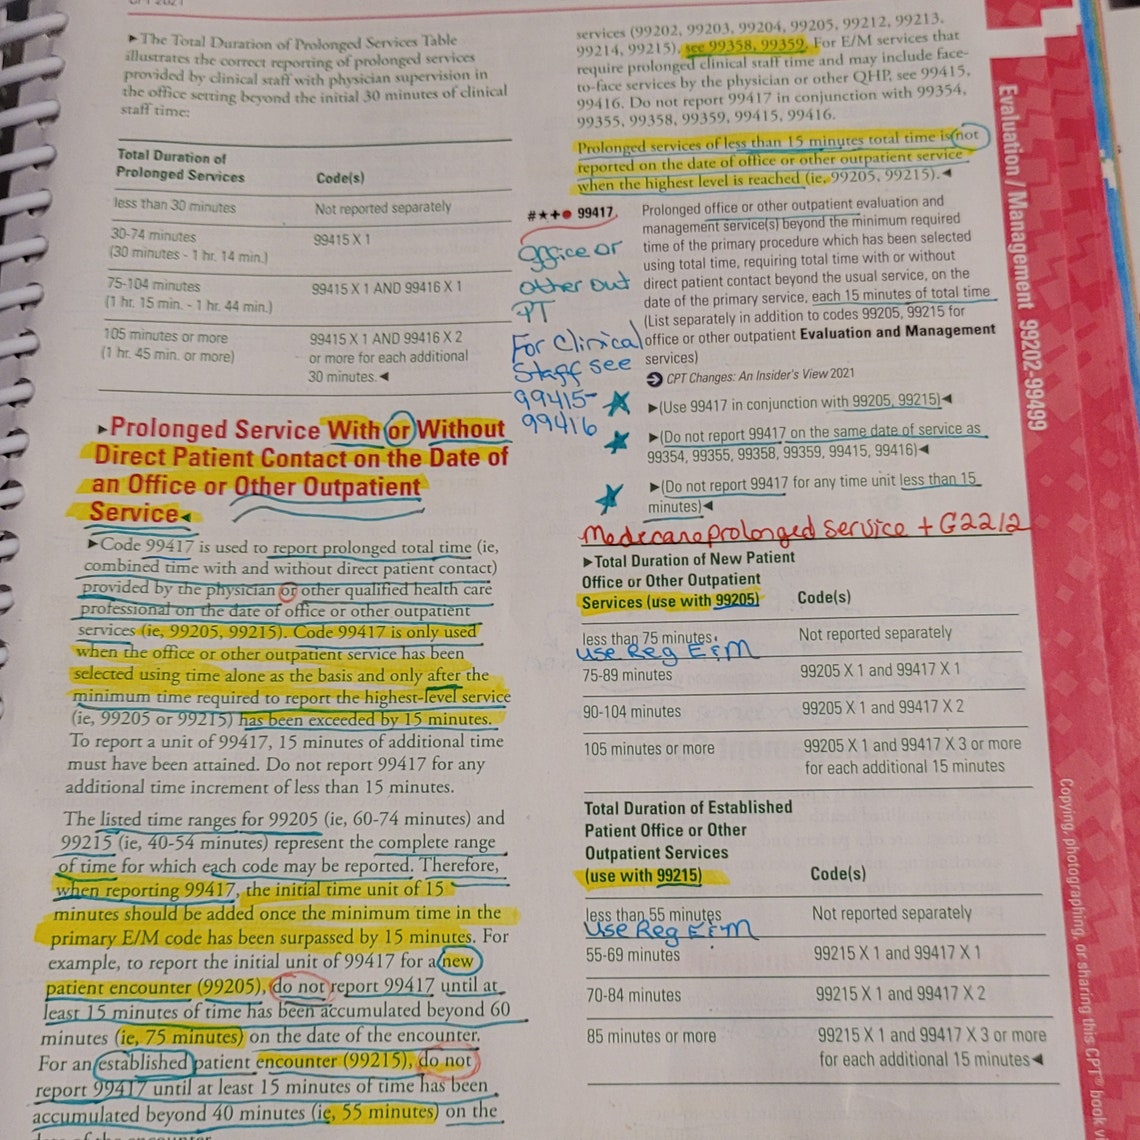 CPT 2021
►The Total Duration of Prolonged Services Table
illustrates the correct reporting of prolonged services
provided by clinical staff with physician supervision in
the office setting beyond the initial 30 minutes of clinical
staff time:
Total Duration of
Prolonged Services Code(s)
less than 30 minutes Not reported separately
30-74 minutes 99415 X 1
(30 minutes - 1 hr. 14 min.)
75-104 minutes 99415 X 1 AND 99416 X 1
(1 hr. 15 min. - 1 hr. 44 min.)
105 minutes or more 99415 X 1 AND 99416 X 2
(1 hr. 45 min. or more) or more for each additional
30 minutes.◄
►Prolonged Service With or Without
Direct Patient Contact on the Date of
an Office or Other Outpatient
Service◄
►Code 99417 is used to report prolonged total time (ie,
combined time with and without direct patient contact)
provided by the physician or other qualified health care
professional on the date of office or other outpatient
services (ie, 99205, 99215). Code 99417 is only used
when the office or other outpatient service has been
selected using time alone as the basis and only after the
minimum time required to report the highest-level service
(ie, 99205 or 99215) has been exceeded by 15 minutes.
To report a unit of 99417, 15 minutes of additional time
must have been attained. Do not report 99417 for any
additional time increment of less than 15 minutes.
The listed time ranges for 99205 (ie, 60-74 minutes) and
99215 (ie, 40-54 minutes) represent the complete range
of time for which each code may be reported. Therefore,
when reporting 99417, the initial time unit of 15
minutes should be added once the minimum time in the
primary E/M code has been surpassed by 15 minutes. For
example, to report the initial unit of 99417 for a new
patient encounter (99205), do not report 99417 until at
least 15 minutes of time has been accumulated beyond 60
minutes (ie, 75 minutes) on the date of the encounter.
For an established patient encounter (99215), do not
report 99417 until at least 15 minutes of time has been
accumulated beyond 40 minutes (ie, 55 minutes) on the
services (99202, 99203, 99204, 99205, 99212, 99213,
99214, 99215), see 99358, 99359. For E/M services that
require prolonged clinical staff time and may include face-
to-face services by the physician or other QHP, see 99415,
99416. Do not report 99417 in conjunction with 99354,
99355, 99358, 99359, 99415, 99416.
Prolonged services of less than 15 minutes total time is not
reported on the date of office or other outpatient service
when the highest level is reached (ie, 99205, 99215).◄
#★✚● 99417 Prolonged office or other outpatient evaluation and
management service(s) beyond the minimum required
time of the primary procedure which has been selected
using total time, requiring total time with or without
direct patient contact beyond the usual service, on the
date of the primary service, each 15 minutes of total time
(List separately in addition to codes 99205, 99215 for
office or other outpatient Evaluation and Management
services)
CPT Changes: An Insider's View 2021
►(Use 99417 in conjunction with 99205, 99215)◄
►(Do not report 99417 on the same date of service as
99354, 99355, 99358, 99359, 99415, 99416)◄
►(Do not report 99417 for any time unit less than 15
minutes)◄
office or
other out
PT
For Clinical
Staff see
99415-
99416
Medicare prolonged service + G2212
►Total Duration of New Patient
Office or Other Outpatient
Services (use with 99205) Code(s)
less than 75 minutes Not reported separately
use Reg E&M
75-89 minutes 99205 X 1 and 99417 X 1
90-104 minutes 99205 X 1 and 99417 X 2
105 minutes or more 99205 X 1 and 99417 X 3 or more
for each additional 15 minutes
Total Duration of Established
Patient Office or Other
Outpatient Services
(use with 99215) Code(s)
less than 55 minutes Not reported separately
Use Reg E&M
55-69 minutes 99215 X 1 and 99417 X 1
70-84 minutes 99215 X 1 and 99417 X 2
85 minutes or more 99215 X 1 and 99417 X 3 or more
for each additional 15 minutes◄
Evaluation / Management 99202-99499
Copying, photographing, or sharing this CPT® book v